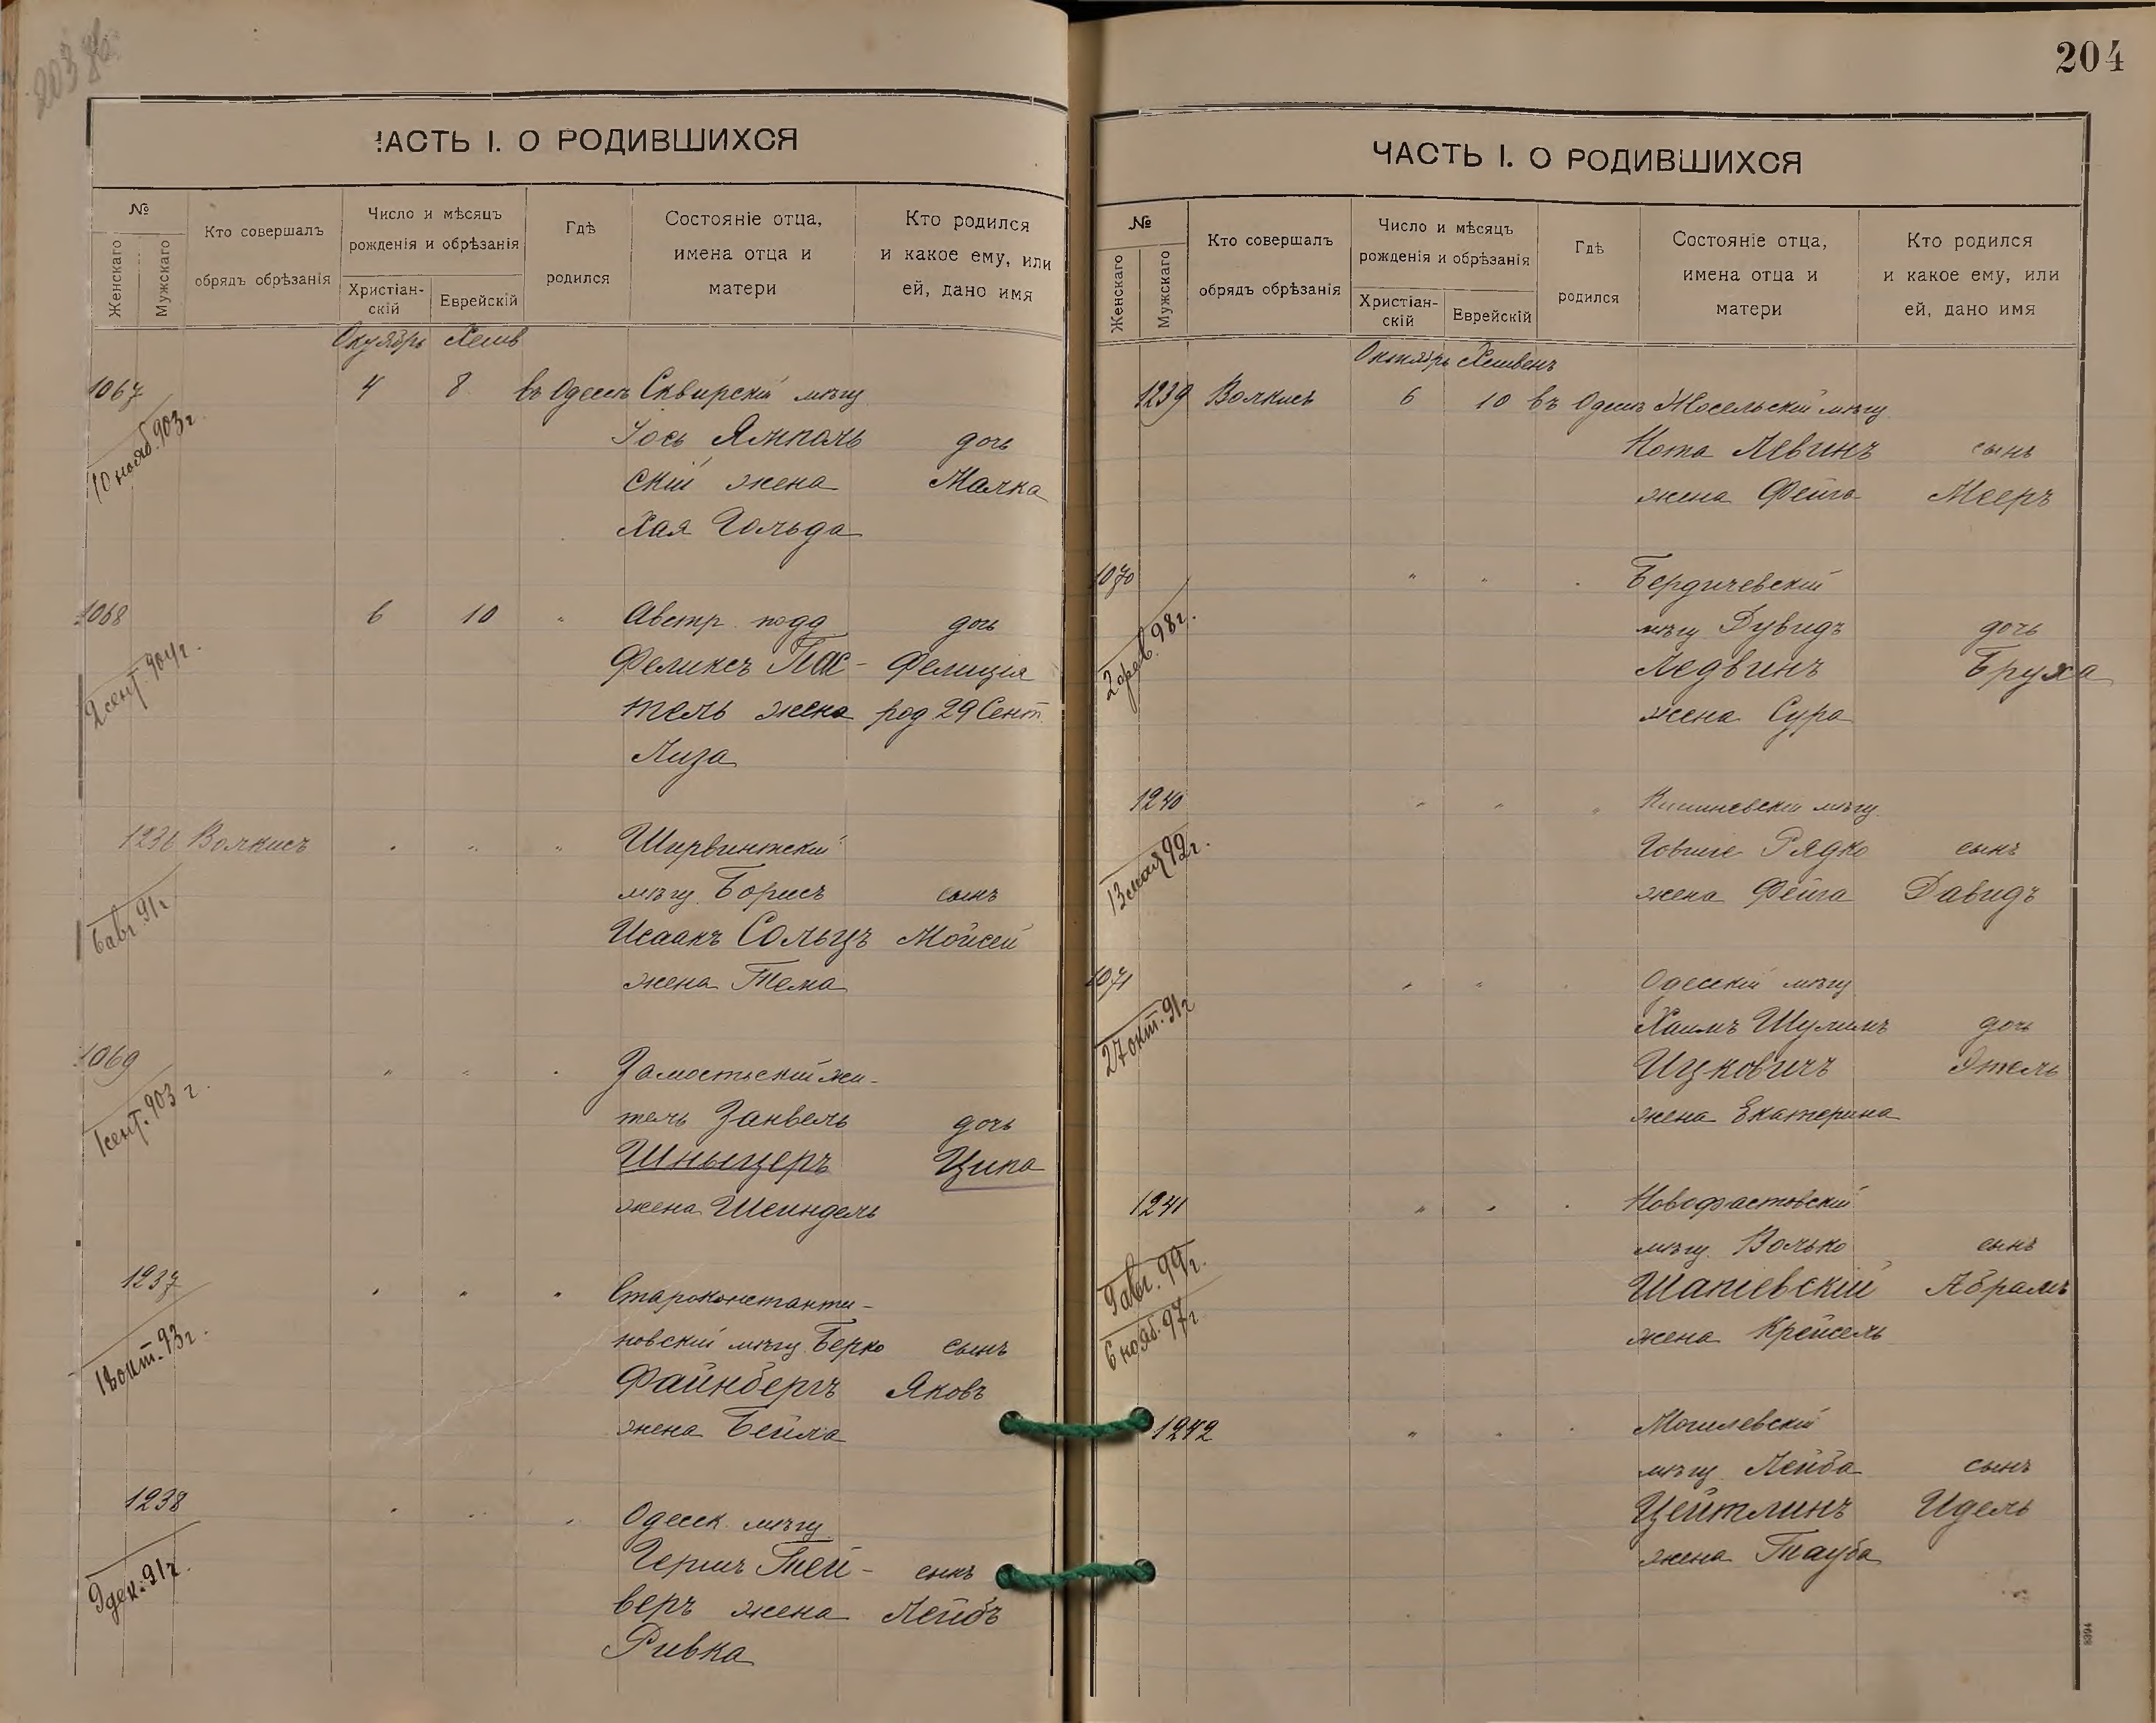 203 об.
ЧАСТЬ I. О РОДИВШИХСЯ
№
Женскаго
Мужскаго
Кто совершалъ
обрядъ обрѣзанія
Число и мѣсяцъ
рожденія и обрѣзанія
Христіан-
скій
Еврейскій
Гдѣ
родился
Состояніе отца,
имена отца и
матери
Кто родился
и какое ему, или
ей, дано имя
Октябрь Хешв
1067 4 8 въ Одессѣ Сквирскій мѣщ
10 нояб. 903 г.
Іось Ямполь дочь
скій жена Малка
Хая Гольда
1068 6 10 " Австр. подд дочь
2 сент. 904 г.
Феликсъ Пас- Фелиція
тель жена род 29 Сент.
Лиза
1236 Волкисъ " " " Ширвинтскій
6 авг. 91 г
мѣщ. Борисъ сынъ
Исаакъ Сольцъ Мойсей
жена Тема
1069 " " " Замостьскій жи-
1 сент. 903 г.
тель Занвель дочь
Шныцеръ Ципа
жена Шейндель
1237 " " " Староконстанти-
18 окт. 93 г.
новскій мѣщ. Берко сынъ
Файнбергъ Яковъ
жена Бейла
1238 " " " Одесск. мѣщ
9 дек. 91 г.
Гершъ Тей- сынъ
веръ жена Лейбъ
Ривка
204
ЧАСТЬ I. О РОДИВШИХСЯ
№
Женскаго
Мужскаго
Кто совершалъ
обрядъ обрѣзанія
Число и мѣсяцъ
рожденія и обрѣзанія
Христіан-
скій
Еврейскій
Гдѣ
родился
Состояніе отца,
имена отца и
матери
Кто родился
и какое ему, или
ей, дано имя
Октябрь Хешвенъ
1239 Волкисъ 6 10 въ Одессѣ Мосельскій мѣщ
Нота Левинъ сынъ
жена Фейга Мееръ
1070 " " " Бердичевскій
2 фев. 98 г.
мѣщ Дувидъ дочь
Ледвинъ Бруха
жена Сура
1240 " " " Кишиневскій мѣщ.
13 мая 92 г.
Говшіе Рядко сынъ
жена Фейга Давидъ
1071 " " " Одесскій мѣщ
27 окт. 91 г
Хаимъ Шулимъ дочь
Ицковичъ Этель
жена Екатерина
1241 " " " Новофастовскій
9 авг. 99 г.
6 нояб. 97 г.
мѣщ. Волько сынъ
Шапіевскій Абрамъ
жена Крейсель
1242 " " " Могилевскій
мѣщ. Лейба сынъ
Цейтлинъ Идель
жена Тауба
8394